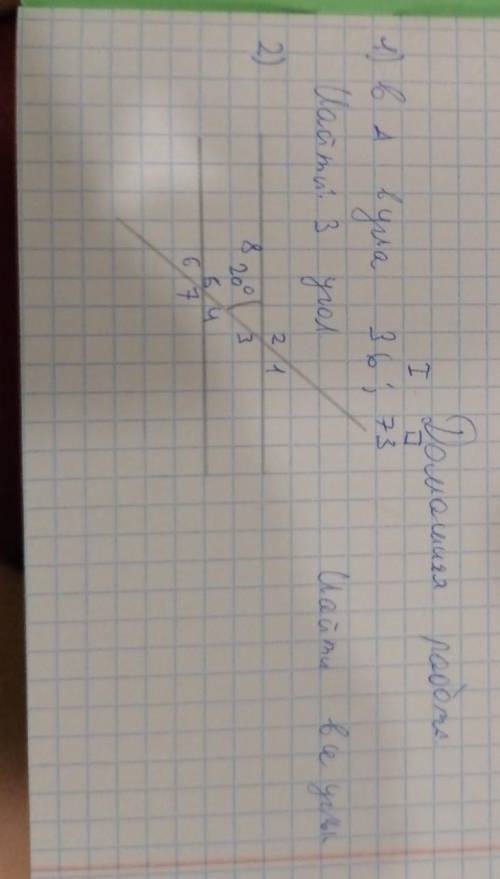 Домашняя работа.
I II
1) В Δ угла 36; 73
Найти: 3 угол
2) Найти все углы
2 1
8 20° 3
5 4
6 7